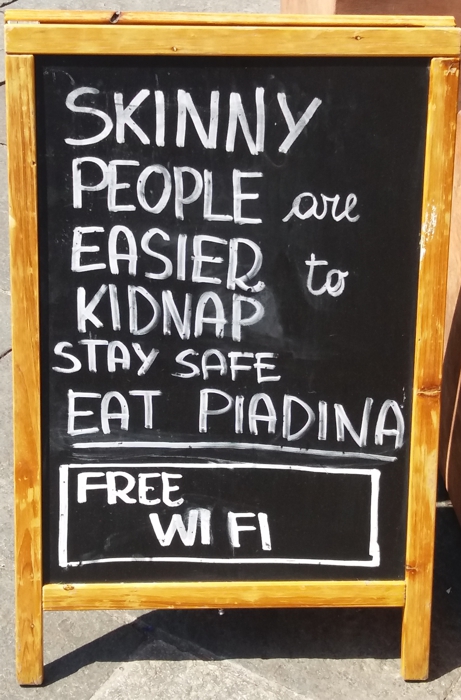 SKINNY
PEOPLE are
EASIER to
KIDNAP
STAY SAFE
EAT PIADINA
FREE
WI FI